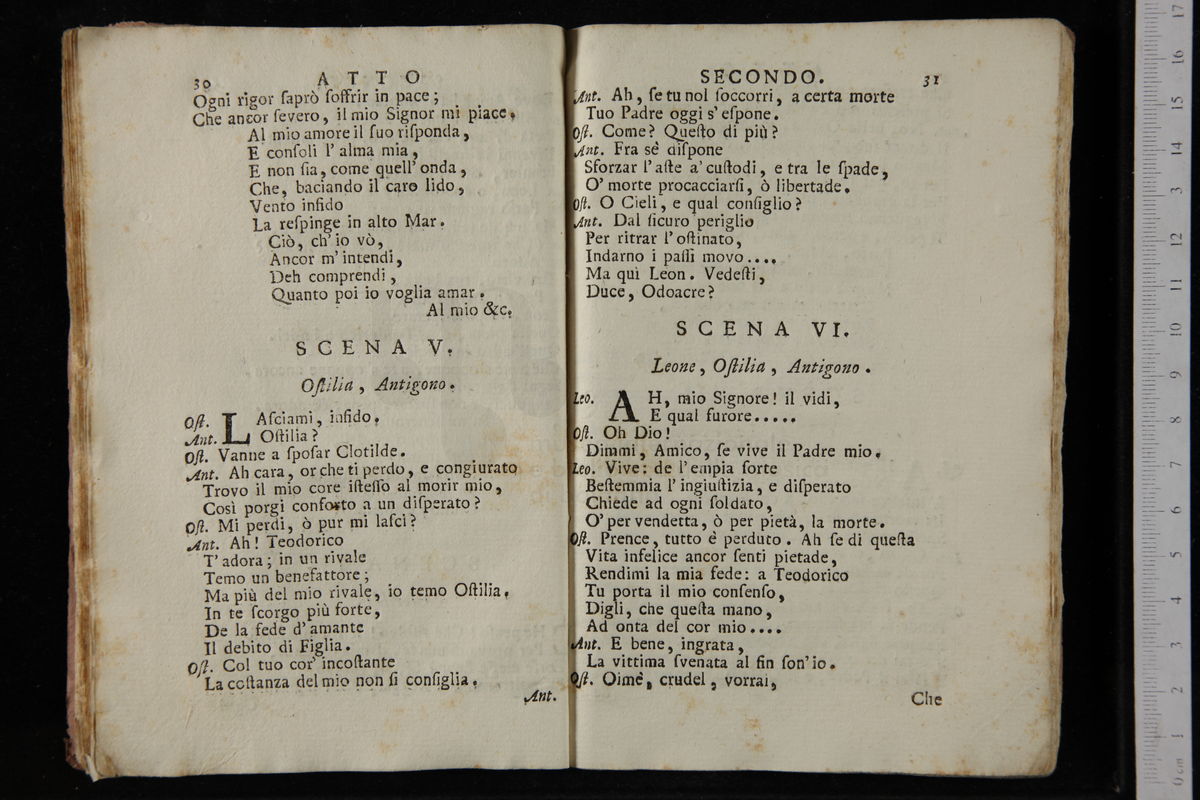 30 ATTO
Ogni rigor ſaprò ſoffrir in pace;
Che ancor ſevero, il mio Signor mi piace.
Al mio amore il ſuo riſponda,
E conſoli l' alma mia,
E non ſia, come quell' onda,
Che, baciando il caro lido,
Vento infido
La reſpinge in alto Mar.
Ciò, ch' io vò,
Ancor m' intendi,
Deh comprendi,
Quanto poi io voglia amar.
Al mio &c.
SCENA V.
Oſtilia, Antigono.
Oſt. LAſciami, infido.
Ant. Oſtilia?
Oſt. Vanne a ſpoſar Clotilde.
Ant. Ah cara, or che ti perdo, e congiurato
Trovo il mio core iſteſſo al morir mio,
Così porgi conforto a un diſperato?
Oſt. Mi perdi, ò pur mi laſci?
Ant. Ah! Teodorico
T' adora; in un rivale
Temo un benefattore;
Ma più del mio rivale, io temo Oſtilia.
In te ſcorgo più forte,
De la fede d' amante
Il debito di Figlia.
Oſt. Col tuo cor' incoſtante
La coſtanza del mio non ſi conſiglia.
Ant.
SECONDO. 31
Ant. Ah, ſe tu nol ſoccorri, a certa morte
Tuo Padre oggi s' eſpone.
Oſt. Come? Queſto di più?
Ant. Fra sè diſpone
Sforzar l' aſte a' cuſtodi, e tra le ſpade,
O' morte procacciarſi, ò libertade.
Oſt. O Cieli, e qual conſiglio?
Ant. Dal ſicuro periglio
Per ritrar l' oſtinato,
Indarno i paſſi movo....
Ma quì Leon. Vedeſti,
Duce, Odoacre?
SCENA VI.
Leone, Oſtilia, Antigono.
Leo. AH, mio Signore! il vidi,
E qual furore.....
Oſt. Oh Dio!
Dimmi, Amico, ſe vive il Padre mio.
Leo. Vive: de l' empia ſorte
Beſtemmia l' ingiuſtizia, e diſperato
Chiede ad ogni ſoldato,
O' per vendetta, ò per pietà, la morte.
Oſt. Prence, tutto è perduto. Ah ſe di queſta
Vita infelice ancor ſenti pietade,
Rendimi la mia fede: a Teodorico
Tu porta il mio conſenſo,
Digli, che queſta mano,
Ad onta del cor mio....
Ant. E bene, ingrata,
La vittima ſvenata al fin ſon' io.
Oſt. Oimè, crudel, vorrai,
Che
0 cm 1 2 3 4 5 6 7 8 9 10 11 12 13 14 15 16 17